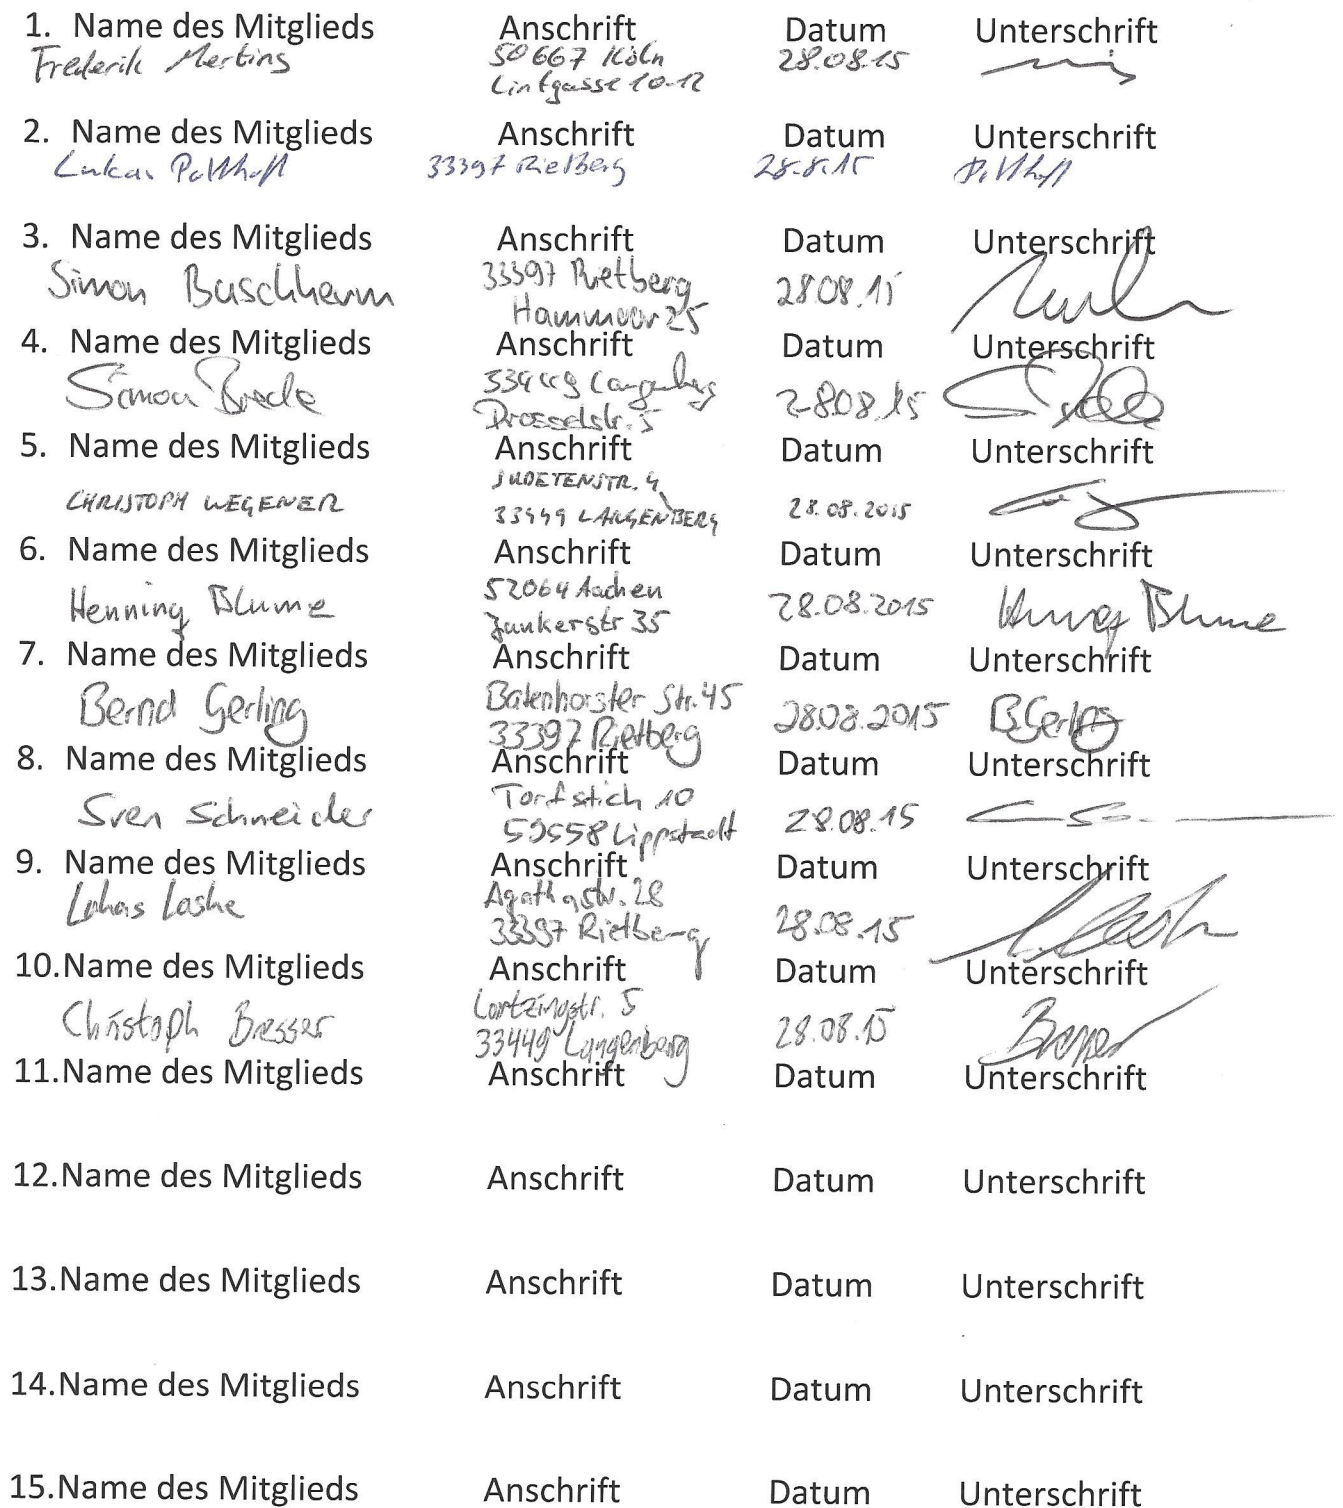 1. Name des Mitglieds Anschrift Datum Unterschrift
Frederik Mertins 50667 Köln 28.08.15
Lintgasse 10-12
2. Name des Mitglieds Anschrift Datum Unterschrift
Lukas Potthoff 33397 Rietberg 28.8.15 Potthoff
3. Name des Mitglieds Anschrift Datum Unterschrift
Simon Buschherm 33397 Rietberg 28.08.15
Hammoor 25
4. Name des Mitglieds Anschrift Datum Unterschrift
Simon Brede 33449 Langenberg 28.08.15
Drosselstr. 5
5. Name des Mitglieds Anschrift Datum Unterschrift
SUDETENSTR. 4
CHRISTOPH WEGENER 33449 LANGENBERG 28.08.2015
6. Name des Mitglieds Anschrift Datum Unterschrift
52064 Aachen
Henning Blume Junkerstr 35 28.08.2015 Henning Blume
7. Name des Mitglieds Anschrift Datum Unterschrift
Batenhorster Str. 45
Bernd Gerling 33397 Rietberg 28.08.2015 B.Gerling
8. Name des Mitglieds Anschrift Datum Unterschrift
Torfstich 10
Sven Schneider 59558 Lippstadt 28.08.15
9. Name des Mitglieds Anschrift Datum Unterschrift
Lukas Laske Agathastr. 28 28.08.15
33397 Rietberg
10.Name des Mitglieds Anschrift Datum Unterschrift
Lortzingstr. 5
Christoph Bresser 33449 Langenberg 28.08.15 Bresser
11.Name des Mitglieds Anschrift Datum Unterschrift
12.Name des Mitglieds Anschrift Datum Unterschrift
13.Name des Mitglieds Anschrift Datum Unterschrift
14.Name des Mitglieds Anschrift Datum Unterschrift
15.Name des Mitglieds Anschrift Datum Unterschrift